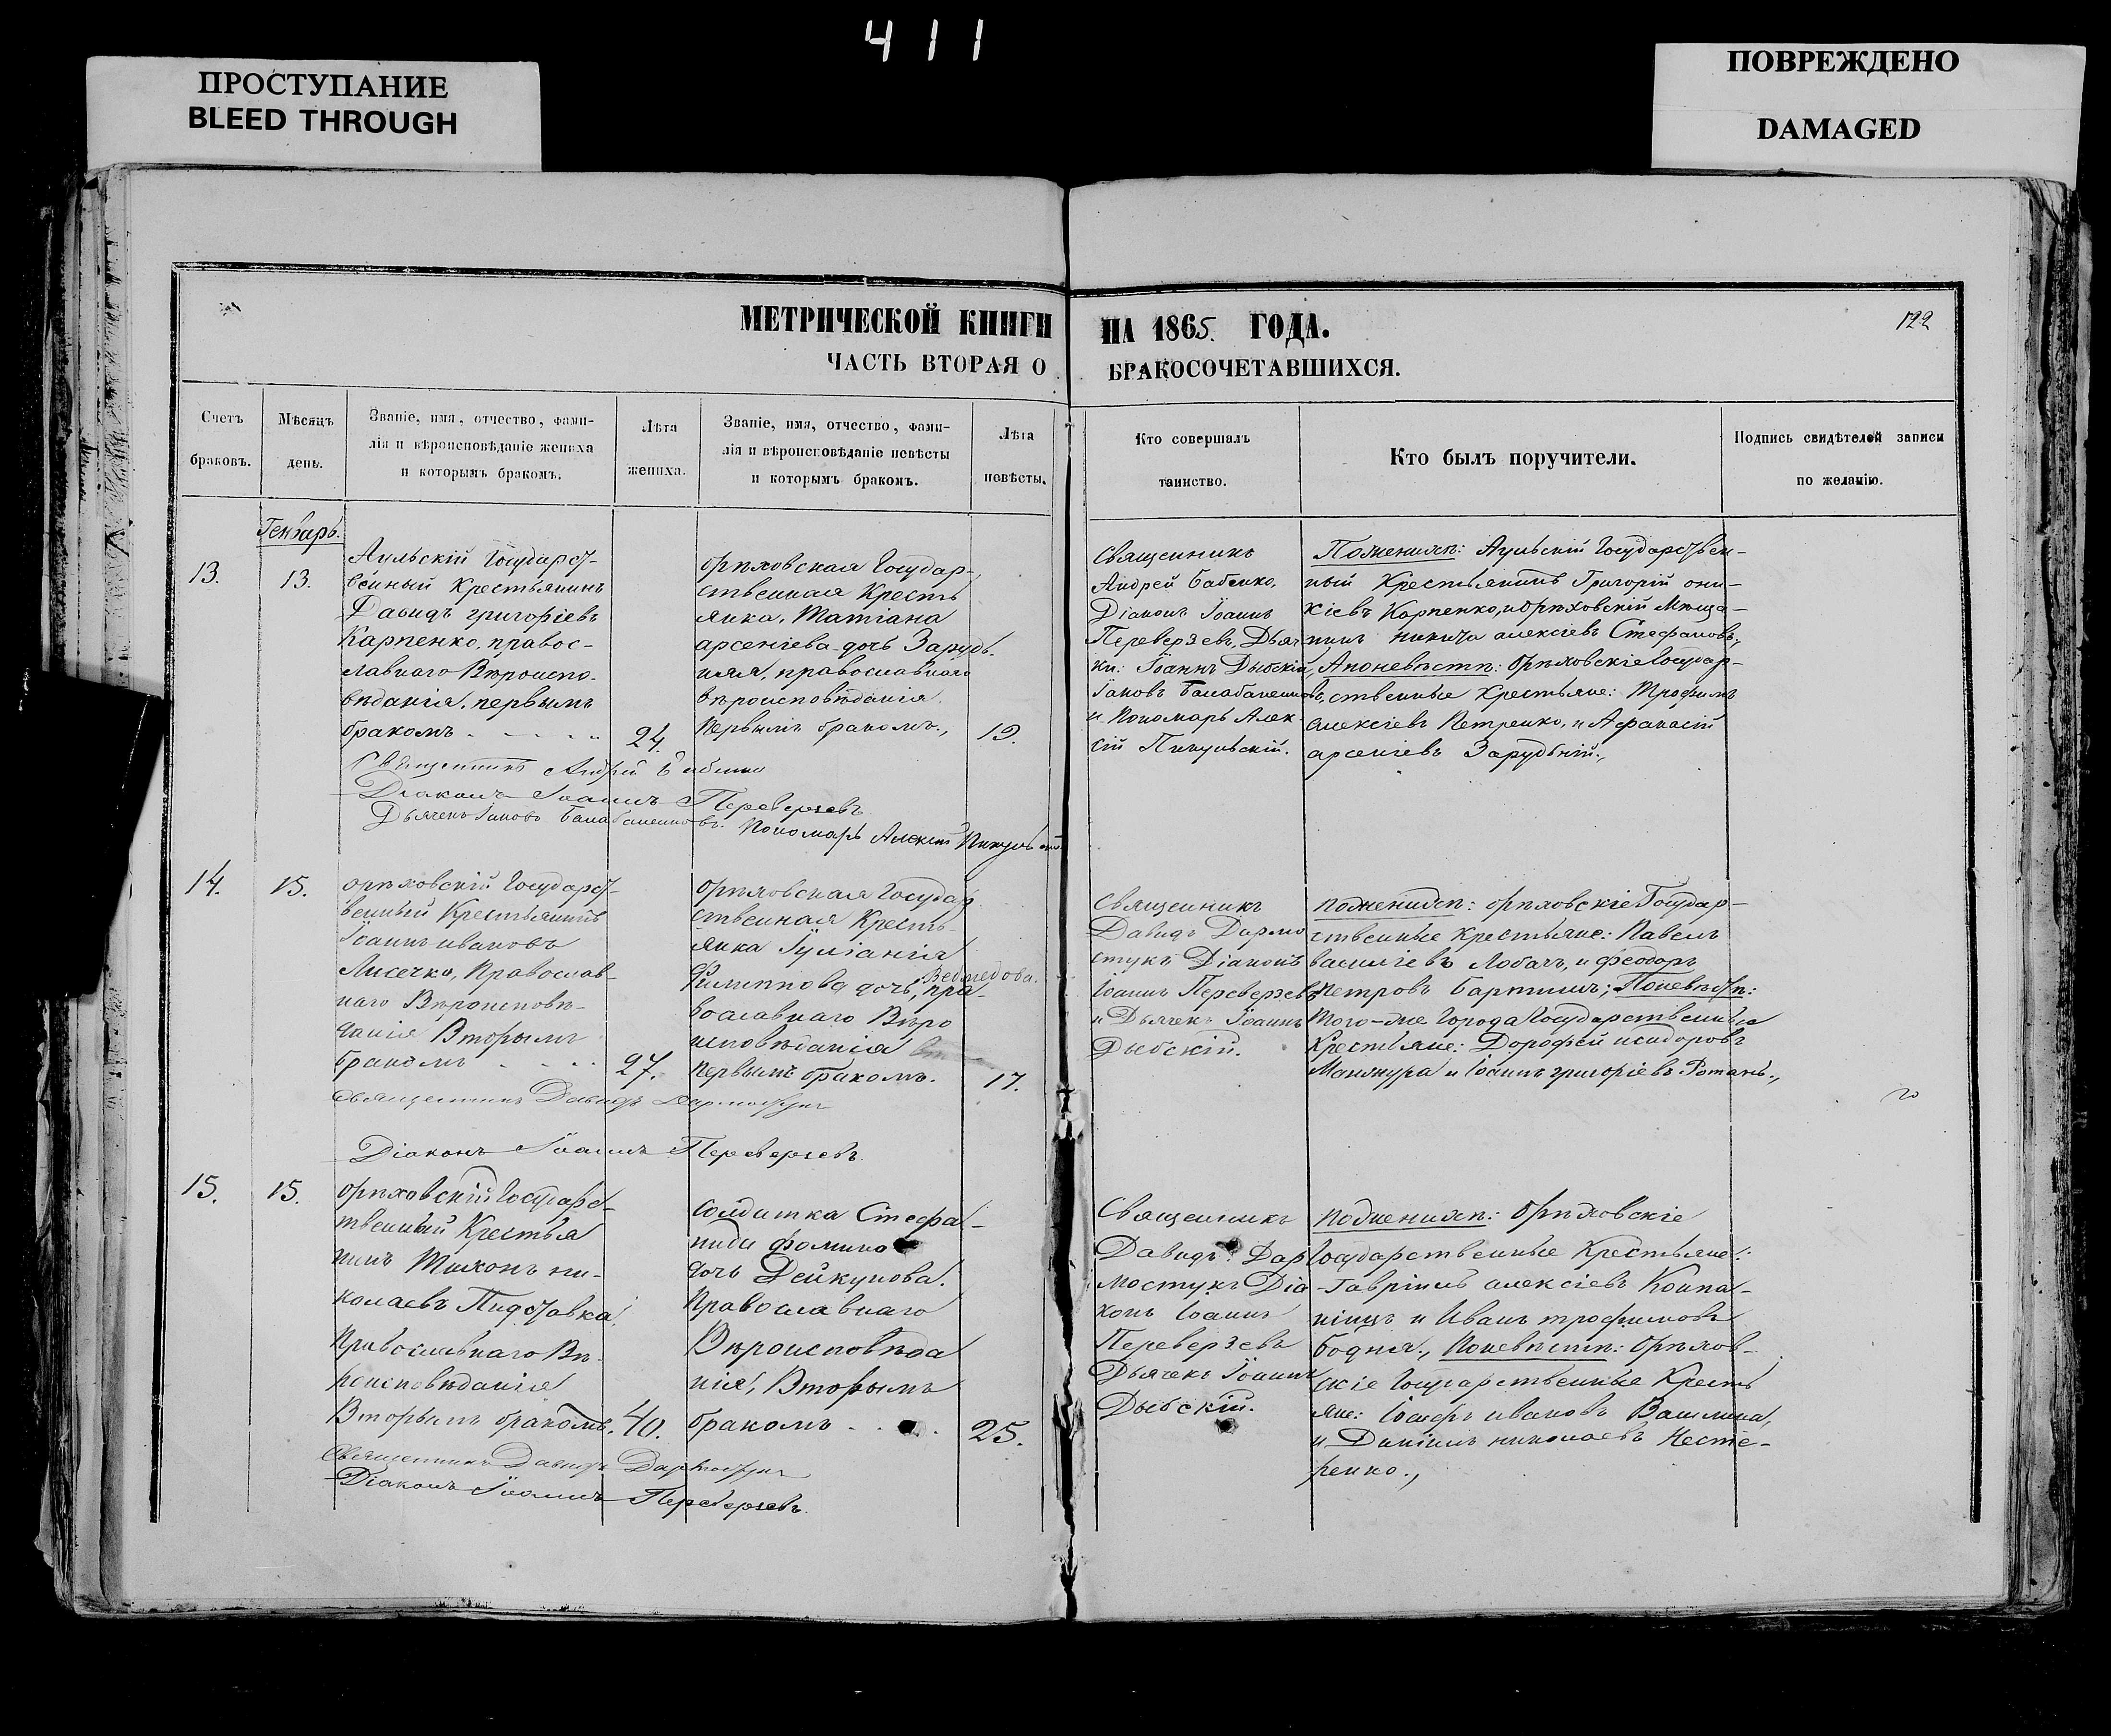 411
ПРОСТУПАНИЕ
BLEED THROUGH
ПОВРЕЖДЕНО
DAMAGED
МЕТРИЧЕСКОЙ КНИГИ НА 1865 ГОДА.
122
ЧАСТЬ ВТОРАЯ О БРАКОСОЧЕТАВШИХСЯ.
Счетъ
браковъ.
Мѣсяцъ
день.
Званіе, имя, отчество, фами-
лія и вѣроисповѣданіе жениха
и которымъ бракомъ.
Лѣта
жениха.
Званіе, имя, отчество, фами-
лія и вѣроисповѣданіе невѣсты
и которымъ бракомъ.
Лѣта
невѣсты.
Кто совершалъ
таинство.
Кто былъ поручители.
Подпись свидѣтелей записи
по желанію.
Генварь.
13.
13.
Аульскій Государст-
венный Крестьянинъ
Давидъ григоріевъ
Карпенко, правос-
лавнаго Вѣроиспо-
вѣданія, первымъ
бракомъ
24.
Орѣховская Государ-
ственная Кресть
янка, Татіана
арсеніева дочь Зарудь-
няя, православнаго
вѣроисповѣданія
первымъ бракомъ.,
19.
Священникъ
Андрей Бабенко,
Діаконъ Іоаннъ
Переверзевъ, Дьяч
ки: Іоаннъ Дыбскій,
Іаковъ Балабаненковъ,
и Пономарь Алек
сій Пикульскій.
Поженихѣ: Аульскій Государствен-
ный Крестьянинъ Григорій они-
кіевъ Карпенко, и Орѣховскій Мѣща-
нинъ никита алексіевъ Стефановъ,
Апоневѣстѣ: Орѣховскіе Государ-
ственные Крестьяне: Трофимъ
алексіевъ Петренко, и Афанасій
арсеніевъ Зарудьній.,
Священникъ Андрей Бабенко
Діаконъ Іоаннъ Переверзевъ
Дьячекъ Іаковъ Балабаненковъ. Пономарь Алексій Пикульскій
14.
15.
орѣховскій Государст-
венный Крестьянинъ
Іоаннъ ивановъ
Лисечко, Православ-
наго Вѣроисповѣ-
данія Вторымъ
бракомъ
27.
Орѣховская Государ
ственная Кресть-
янка Іуліанія
Филиппова дочь, пра-
вославнаго Вѣро
исповѣданія
первымъ бракомъ.
17.
Священникъ
Давидъ Дармо
стукъ Діаконъ
Іоаннъ Переверзевъ
и Дьячекъ Іоаннъ
Дыбскій.
поженихѣ: орѣховскіе Государ-
ственные крестьяне: Павелъ
василіевъ Лобачъ, и феодоръ
Петровъ Бартишъ; Поневѣстѣ:
Того-же Города Государственные
Крестьяне: Дорофей исидоровъ
Манжура и Іоаннъ григоріевъ Ротань.,
Священникъ Давидъ Дармостукъ
Діаконъ Іоаннъ Переверзевъ
15.
15.
Орѣховскій Государс-
твенный Крестья
нинъ Тихонъ ни-
колаевъ Пидставка,
Православнаго Вѣ-
роисповѣданія
Вторымъ бракомъ.
40.
Солдатка Стефа-
нида фомина
дочь Дейкунова.
Православнаго
Вѣроисповѣда
нія, Вторымъ
бракомъ
25.
Священникъ
Давидъ Дар
мостукъ Діа
конъ Іоаннъ
Переверзевъ
Дьячекъ Іоаннъ
Дыбскій.
поженихѣ: Орѣховскіе
Государственные Крестьяне:
Гавріилъ алексіевъ Компа-
ніецъ и Иванъ трофимовъ
Бодня., Поневѣстѣ: Орѣхов-
скіе Государственные Кресть
яне: Іосифъ ивановъ
и Даніилъ николаевъ Несте-
ренко.,
Священникъ Давидъ Дармостукъ
Діаконъ Іоаннъ Переверзевъ